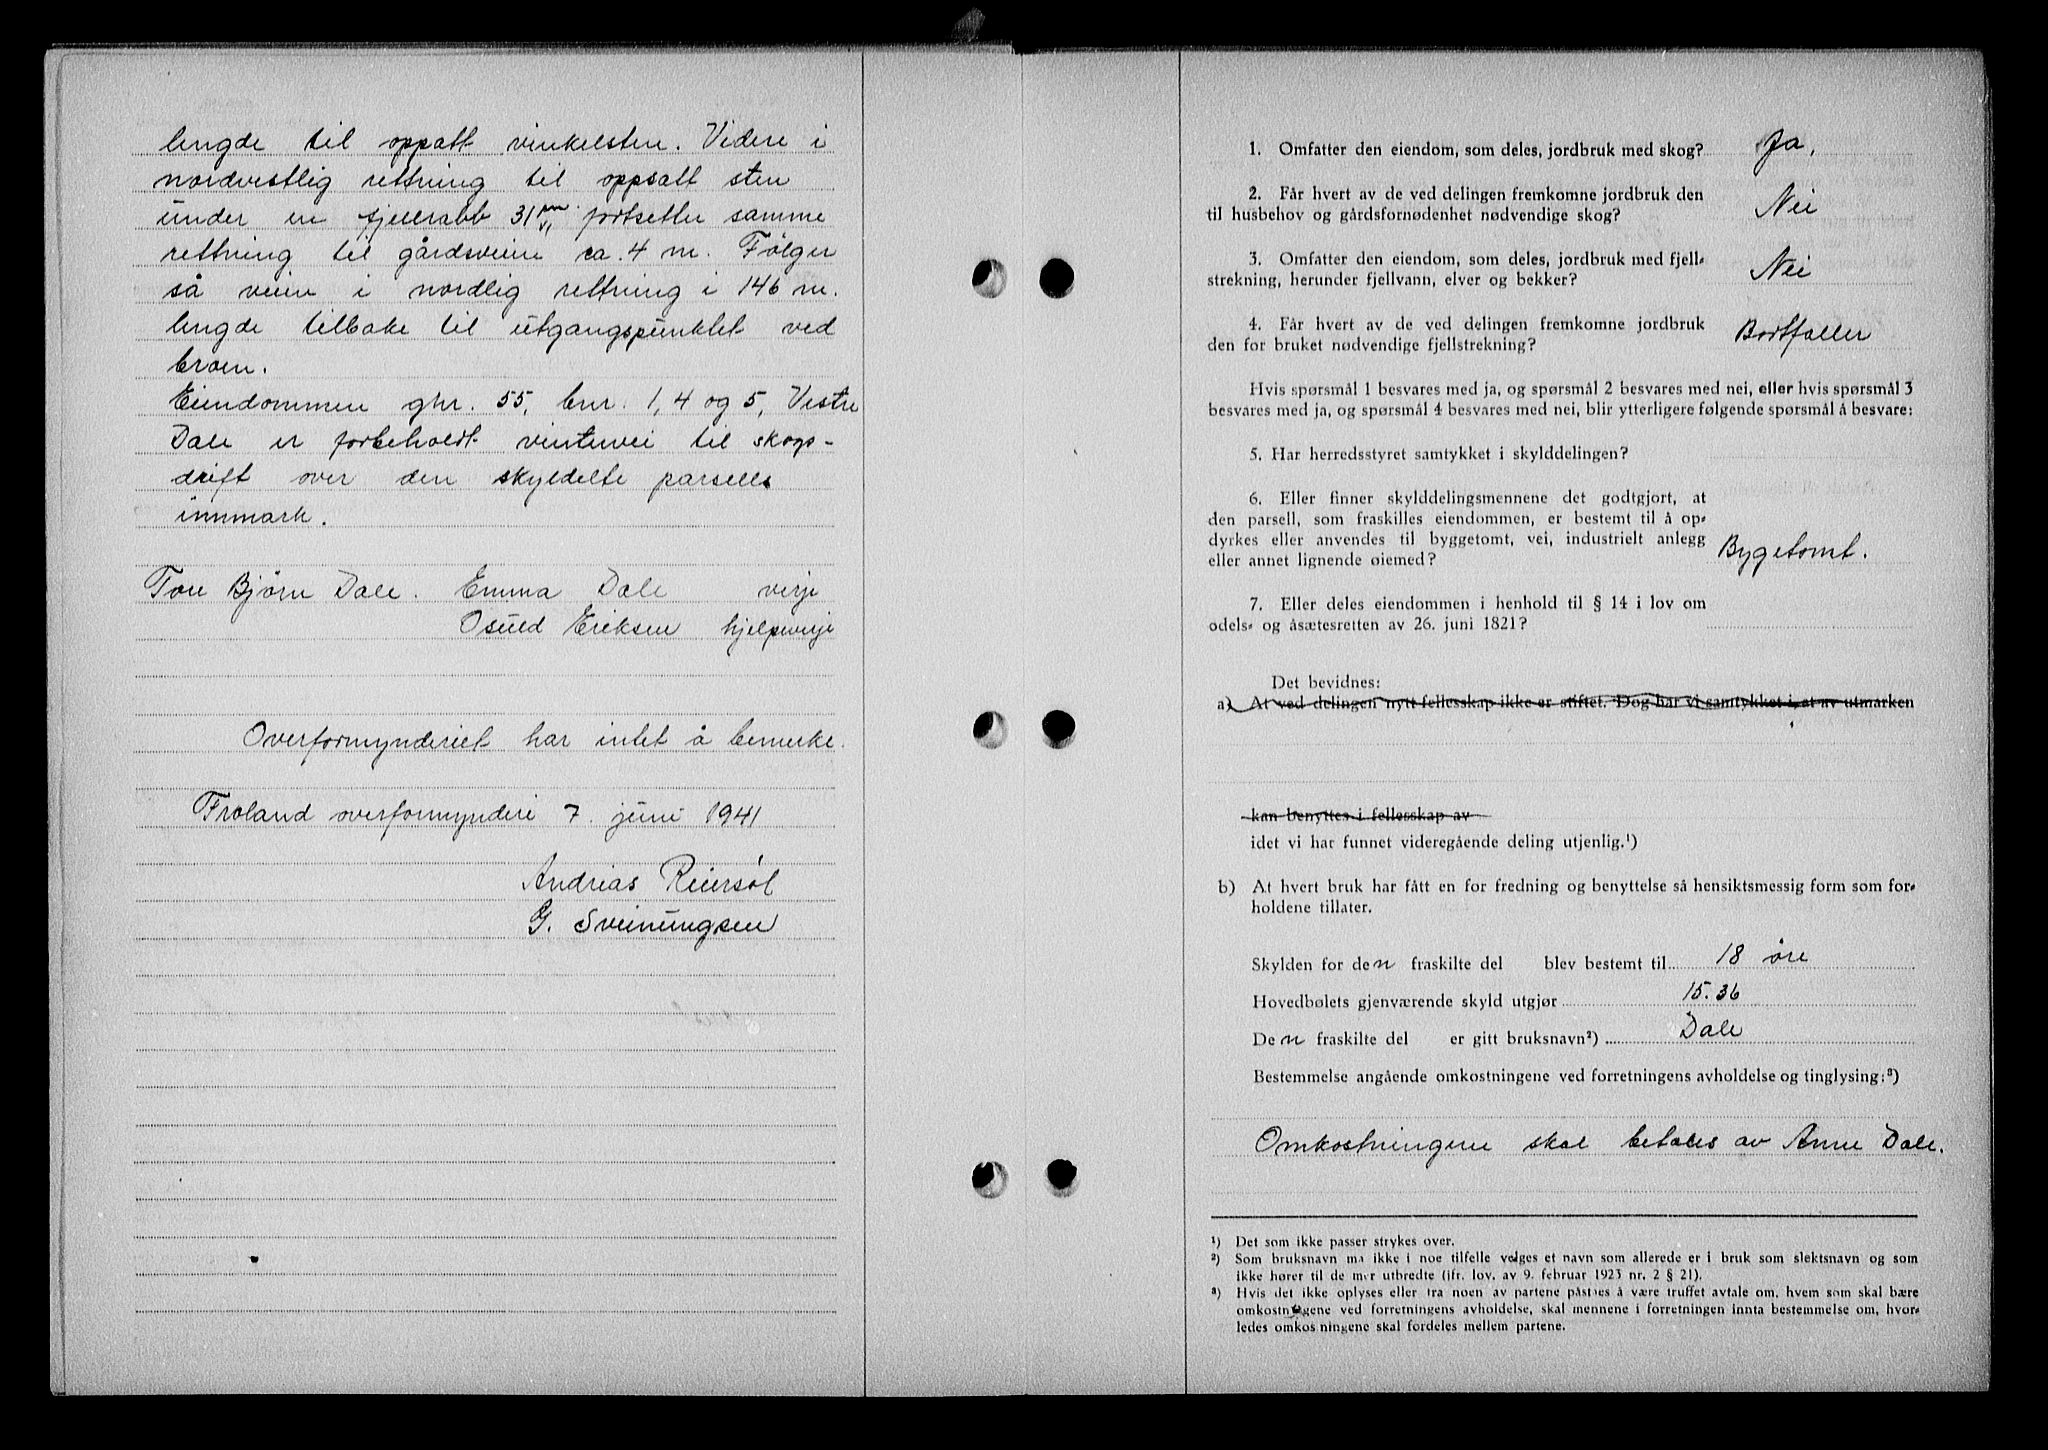 lengde til oppatt vinkelsten. Videre i
nordvestlig rettning til oppsatt sten
under en fjellrabb 31 m fortsetter samme
rettning til gårdsveien ca. 4 m. Følger
så veien i nordlig rettning i 146 m.
lengde tilbake til utgangspunktet ved
broen.
Eiendommen gnr. 55, bnr. 1, 4 og 5, Vestre
Dale er forbeholdt vintervei til skogs-
drift over den skyldelte parsells
innmark.
Tore Bjørn Dale. Emma Dale verje
Osuld Eriksen hjelpeverje
Overformynderiet har intet å bemerke.
Froland overformynderi 7. juni 1941
Andreas Reiersøl
G. Sveinungsen
1. Omfatter den eiendom, som deles, jordbruk med skog? Ja.
2. Får hvert av de ved delingen fremkomne jordbruk den
til husbehov og gårdsfornødenhet nødvendige skog? Nei
3. Omfatter den eiendom, som deles, jordbruk med fjell-
strekning, herunder fjellvann, elver og bekker? Nei
4. Får hvert av de ved delingen fremkomne jordbruk
den for bruket nødvendige fjellstrekning? Bortfaller
Hvis spørsmål 1 besvares med ja, og spørsmål 2 besvares med nei, eller hvis spørsmål 3
besvares med ja, og spørsmål 4 besvares med nei, blir ytterligere følgende spørsmål å besvare:
5. Har herredsstyret samtykket i skylddelingen?
6. Eller finner skylddelingsmennene det godtgjort, at
den parsell, som fraskilles eiendommen, er bestemt til å op-
dyrkes eller anvendes til byggetomt, vei, industrielt anlegg
eller annet lignende øiemed? Bygetomt.
7. Eller deles eiendommen i henhold til § 14 i lov om
odels- og åsætesretten av 26. juni 1821?
Det bevidnes:
a) At ved delingen nytt fellesskap ikke er stiftet. Dog har vi samtykket i, at av utmarken
kan benyttes i fellesskap av
idet vi har funnet videregående deling utjenlig.¹)
b) At hvert bruk har fått en for fredning og benyttelse så hensiktsmessig form som for-
holdene tillater.
Skylden for den fraskilte del blev bestemt til 18 øre
Hovedbølets gjenværende skyld utgjør 15.36
Den fraskilte del er gitt bruksnavn²) Dale
Bestemmelse angående omkostningene ved forretningens avholdelse og tinglysing:³)
Omkostningene skal betales av Anne Dale.
¹) Det som ikke passer strykes over.
²) Som bruksnavn ma ikke i noe tilfelle velges et navn som allerede er i bruk som slektsnavn og som
ikke hører til de mer utbredte (ifr. lov. av 9. februar 1923 nr. 2 § 21).
³) Hvis det ikke oplyses eller fra noen av partene påstoes å være truffet avtale om, hvem som skal bære
omkostningene ved forretningens avholdelse, skal mennene i forretningen innta bestemmelse om, hvor-
ledes omkostningene skal fordeles mellem partene.